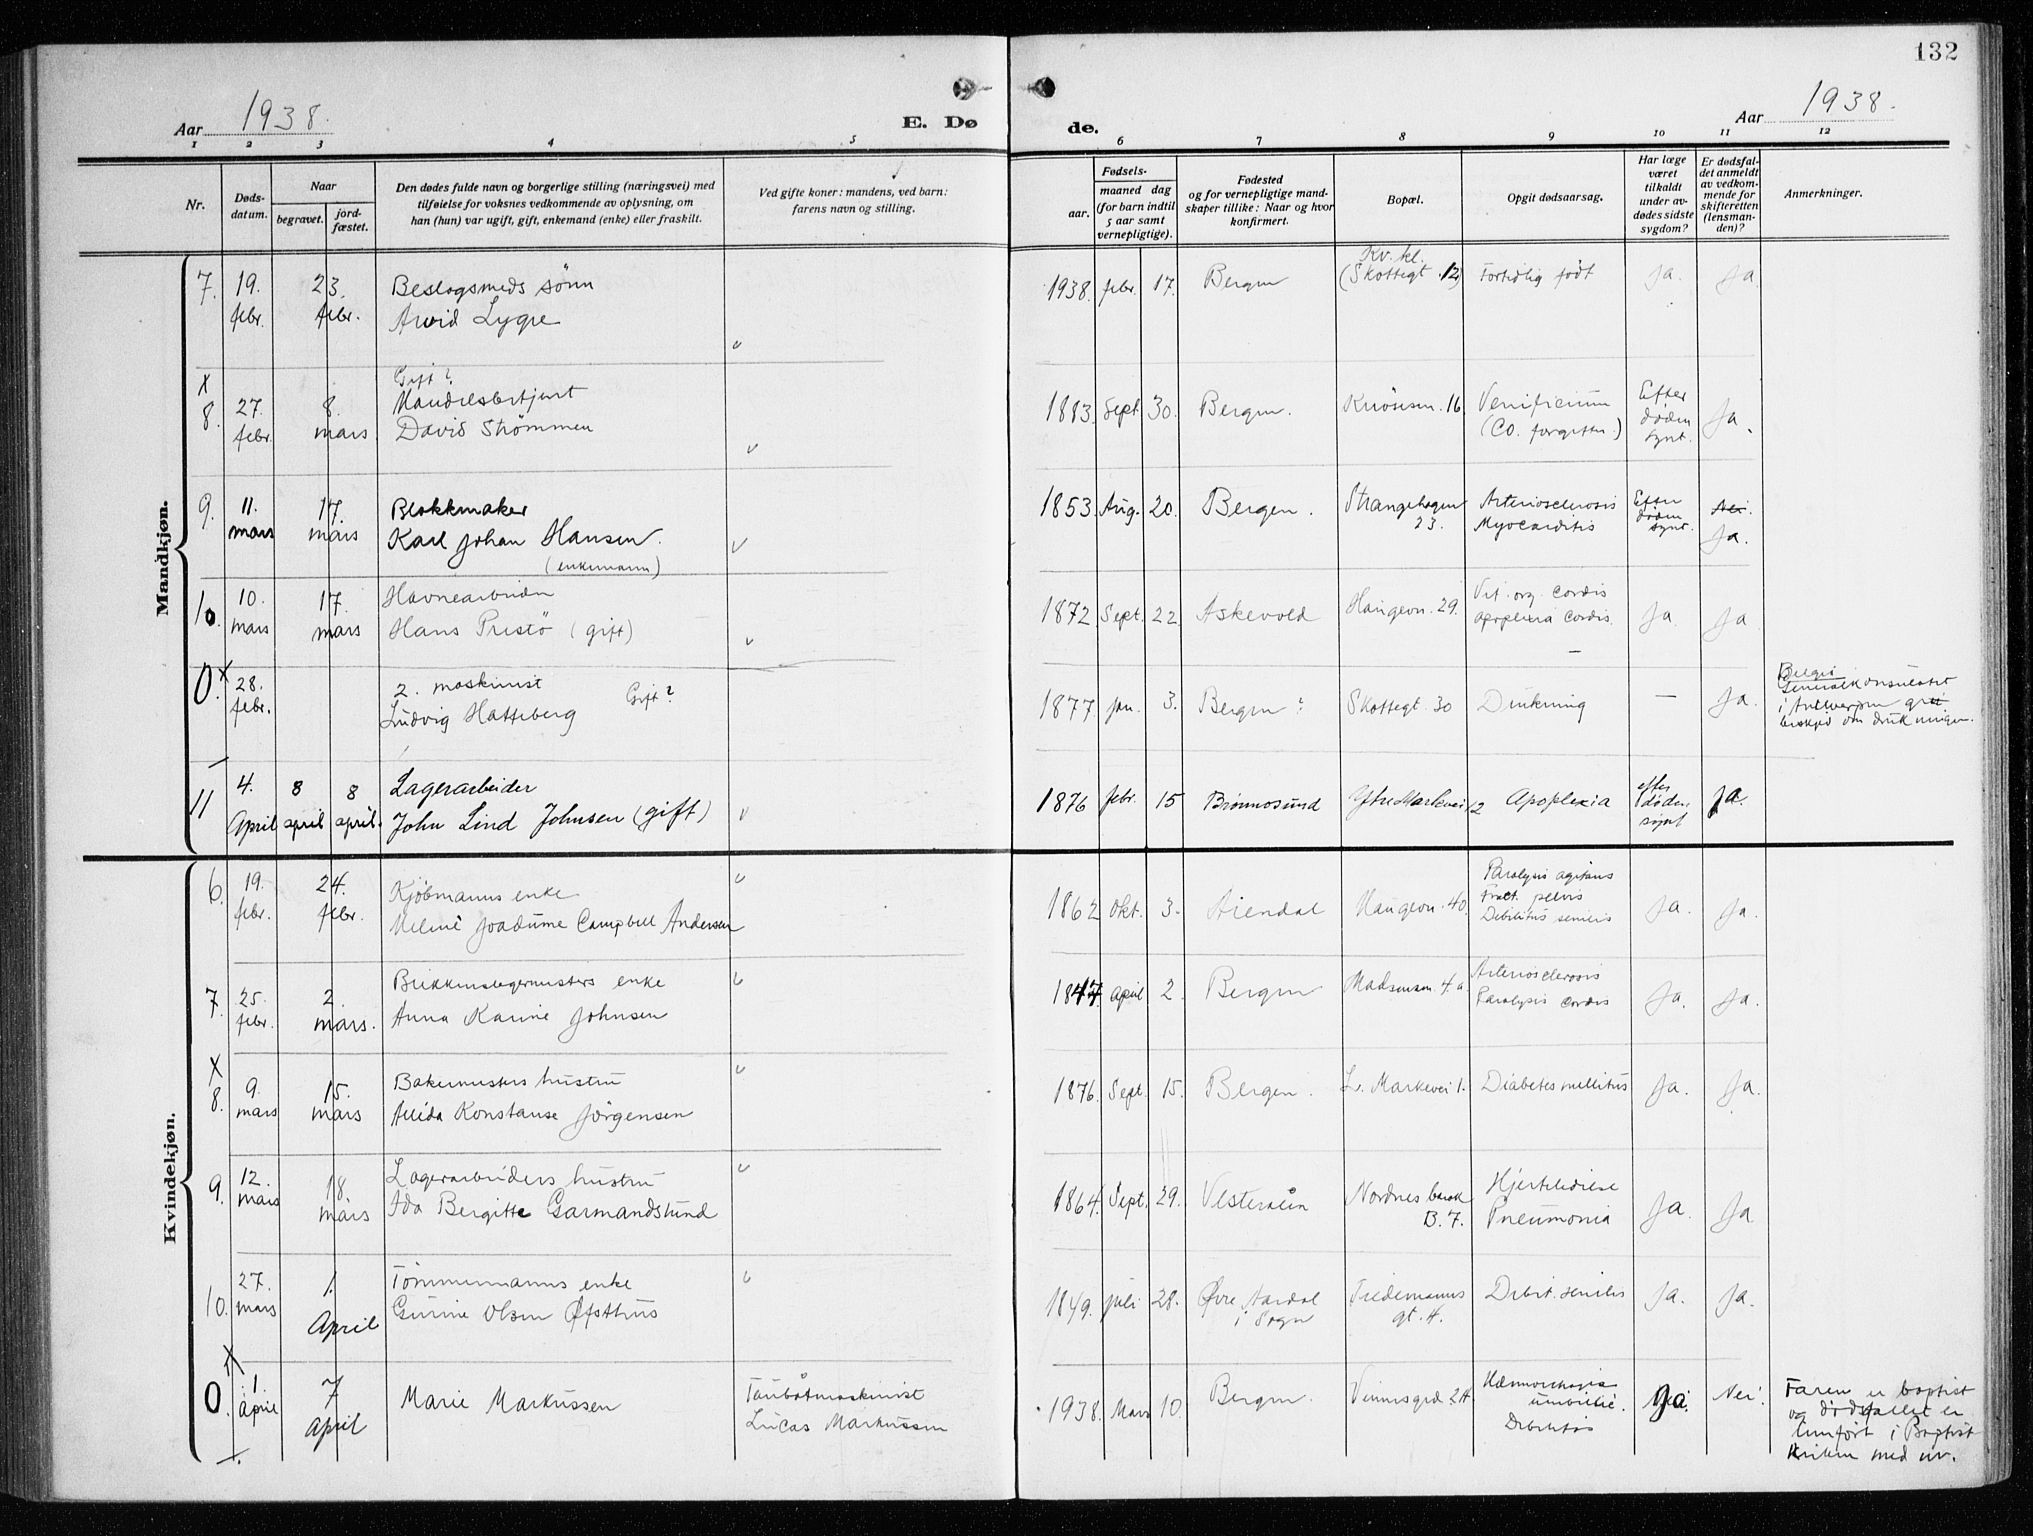 132
Aar 1938.
E. Dø
de.
Aar 1938.
1 2 3 4 5 6 7 8 9 10 11 12
Nr.
Døds-
datum.
Naar
begravet.
jord-
fæstet.
Den dødes fulde navn og borgerlige stilling (næringsvei) med
tilføielse for voksnes vedkommende av oplysning, om
han (hun) var ugift, gift, enkemand (enke) eller fraskilt.
Ved gifte koner: mandens, ved barn:
farens navn og stilling.
Fødsels-
aar.
maaned dag
(for barn indtil
5 aar samt
vernepligtige).
Fødested
og for vernepligtige mand-
skaper tillike: Naar og hvor
konfirmert.
Bopæl.
Opgit dødsaarsag.
Har læge
været
tilkaldt
under av-
dødes sidste
sygdom?
Er dødsfal-
det anmeldt
av vedkom-
mende for
skifteretten
(lensman-
den)?
Anmerkninger.
Mandkjøn.
7. 19. febr. 23. febr.
Beslagsmeds sönn
Arvid Lygre
1938. febr. 17. Bergen
Kv. kl.
(Skottegt. 12)
Fortidlig født
Ja. Ja
x
8. 27. febr. 8. mars
Gift?
David Strømmen
1883. Sept. 30. Bergen. Knøsesm. 16
Venificium
(CO. forgiftn.)
Efter
døden
synt.
Ja.
9. 11. mars 17. mars
Blokkmaker
Karl Johan Hansen.
(enkemann)
1853. Aug. 20. Bergen.
Strangehagen
23.
Arteriosclerosis
Myocarditis
Efter
døden
synt.
Nei.
Ja.
10. 10. mars 17. mars
Havnearbeider
Hans Prestö (gift)
1872 Sept. 22 Askevold Haugevn. 29.
Vit. org. cordis
apoplexia cordis.
Ja Ja
0. x 28. febr.
2. maskinist
Ludvig Hatteberg
Gift?
1877. Jan. 3. Bergen? Skottegt. 30 Drukning — Ja.
Generalkonsulatet
i Antwerpen
beskjed om drukningen.
11 4. April 8 april 8 april.
Lagerarbeider
John Lind Johnsen (gift)
1876 febr. 15 Brønnøsund Ytre Markevei 12 Apoplexia
efter
døden
synt
Ja.
Kvindekjøn.
6. 19. febr. 24. febr.
Kjøbmanns enke
Campbell Andersen
1862 Okt. 3. Arendal Haugevn. 40.
Paralysis agitans
Fract. pelvis
Debilitus senieris
Ja. Ja.
7. 25. febr. 2. mars.
Blikkenslagermesters enke
Anna Karine Johnsen
1847. April 2. Bergen Madsensm. 4.a
Arteriosclerosis
Paralysis cordis
Ja. Ja.
x
8. 9. mars 15. mars
Bakermesters hustru
Alida Konstanse Jörgensen
1876. Sept. 15. Bergen. L. Markevei 1. Diabetes mellitus Ja. Ja.
9. 12. mars 18. mars
Lagerarbeiders hustru
Ida Bergitte Garmandslund
1864. Sept. 29. Vesteraalen
Nordnes barak
B. 7.
Hjertelidelse
Pneumonia
Ja. Ja
10. 27. mars 1. April
Tømmermanns enke
Gurine Olsen Øfsthus
1849. juli 28.
Øvre Aardal
i Sogn
Tiedemanns
gt. 4.
Debit. senilis
Ja. Ja.
0. x 1. April 7 April
Marie Markussen
Taubåtmaskinist
Lucas Markussen
1938. Mars 10. Bergen.
Hæmorrhagia
umbilic.
Debilitas
Ja. Nei.
Faren er baptist
og dødsfallet er
innført i Baptist
kirken med nr.